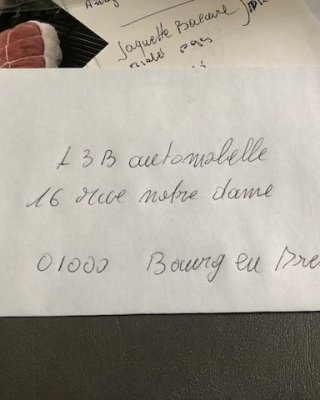 Jaquette Baccara
L3B automobelle
16 rue notre dame
01000 Bourg en Bre